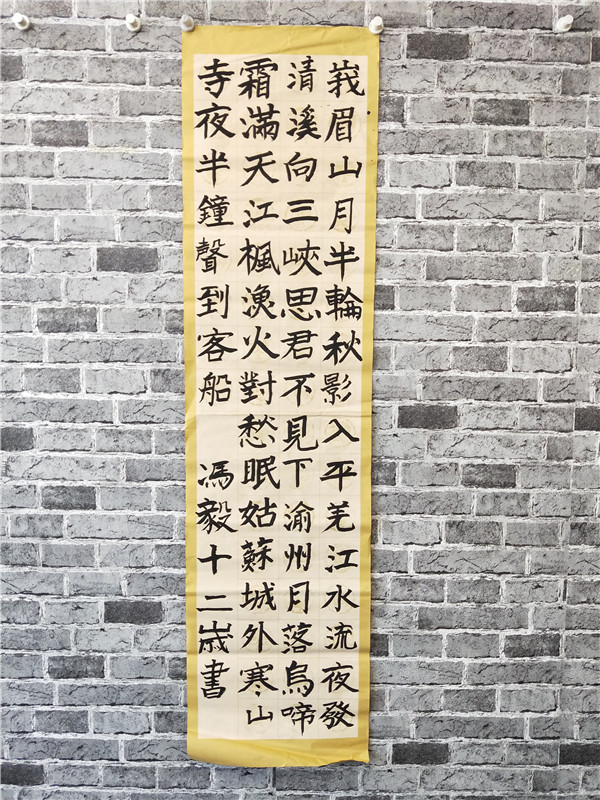 峩眉山月半輪秋影入平羌江水流夜發
清溪向三峽思君不見下渝州月落烏啼
霜滿天江楓漁火對愁眠姑蘇城外寒山
寺夜半鐘聲到客船 馮毅十二歲書